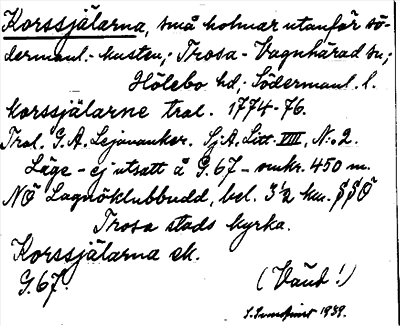 Korssjälarna, små holmar utanför sö-
dermanl.-kusten; Trosa-Vagnhärad sn;
Hölebo hd; Södermanl. l.
Korssjälarne tral. 1774-76.
Tral. G.A. Lejonanker. Sj.A. Litt. VIII, N:o 2.
Läge - ej utsatt å G.67 - omkr. 450 m.
NÖ Lagnöklubbudd, bel. 3 1/2 km. SSÖ
Trosa stads kyrka.
Korssjälarna ek.
G.67.
(Vänd!)
1939.